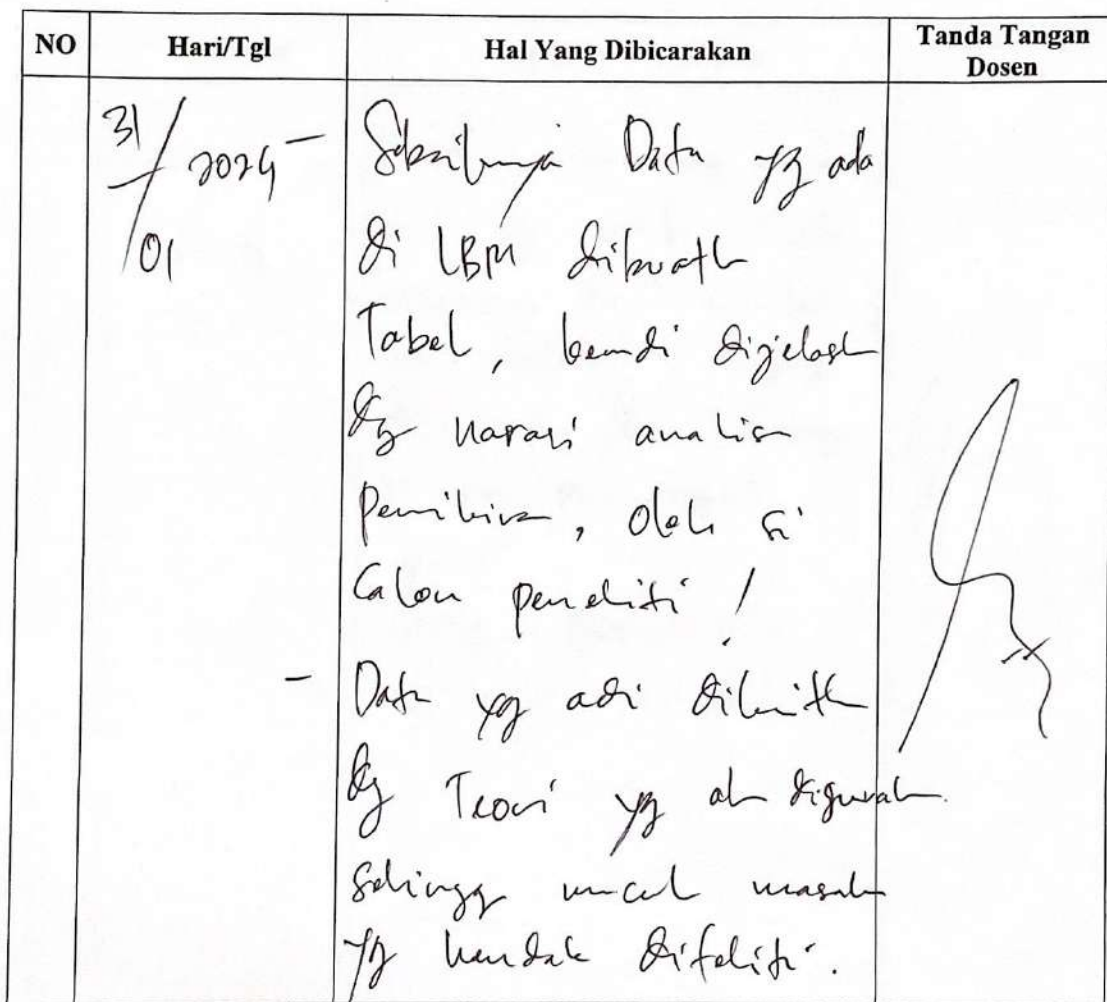 NO Hari/Tgl Hal Yang Dibicarakan Tanda Tangan Dosen
31/01 2024 - Sebaiknya Data yg ada
di LBM dibuatk
Tabel, kemudi dijelask
dg narasi analisa
pemikiran, oleh si
Calon peneliti !
- Data yg ada dikaitk
dg Teori yg ak digunak
sehingga muncul masalah
yg hendak diteliti.